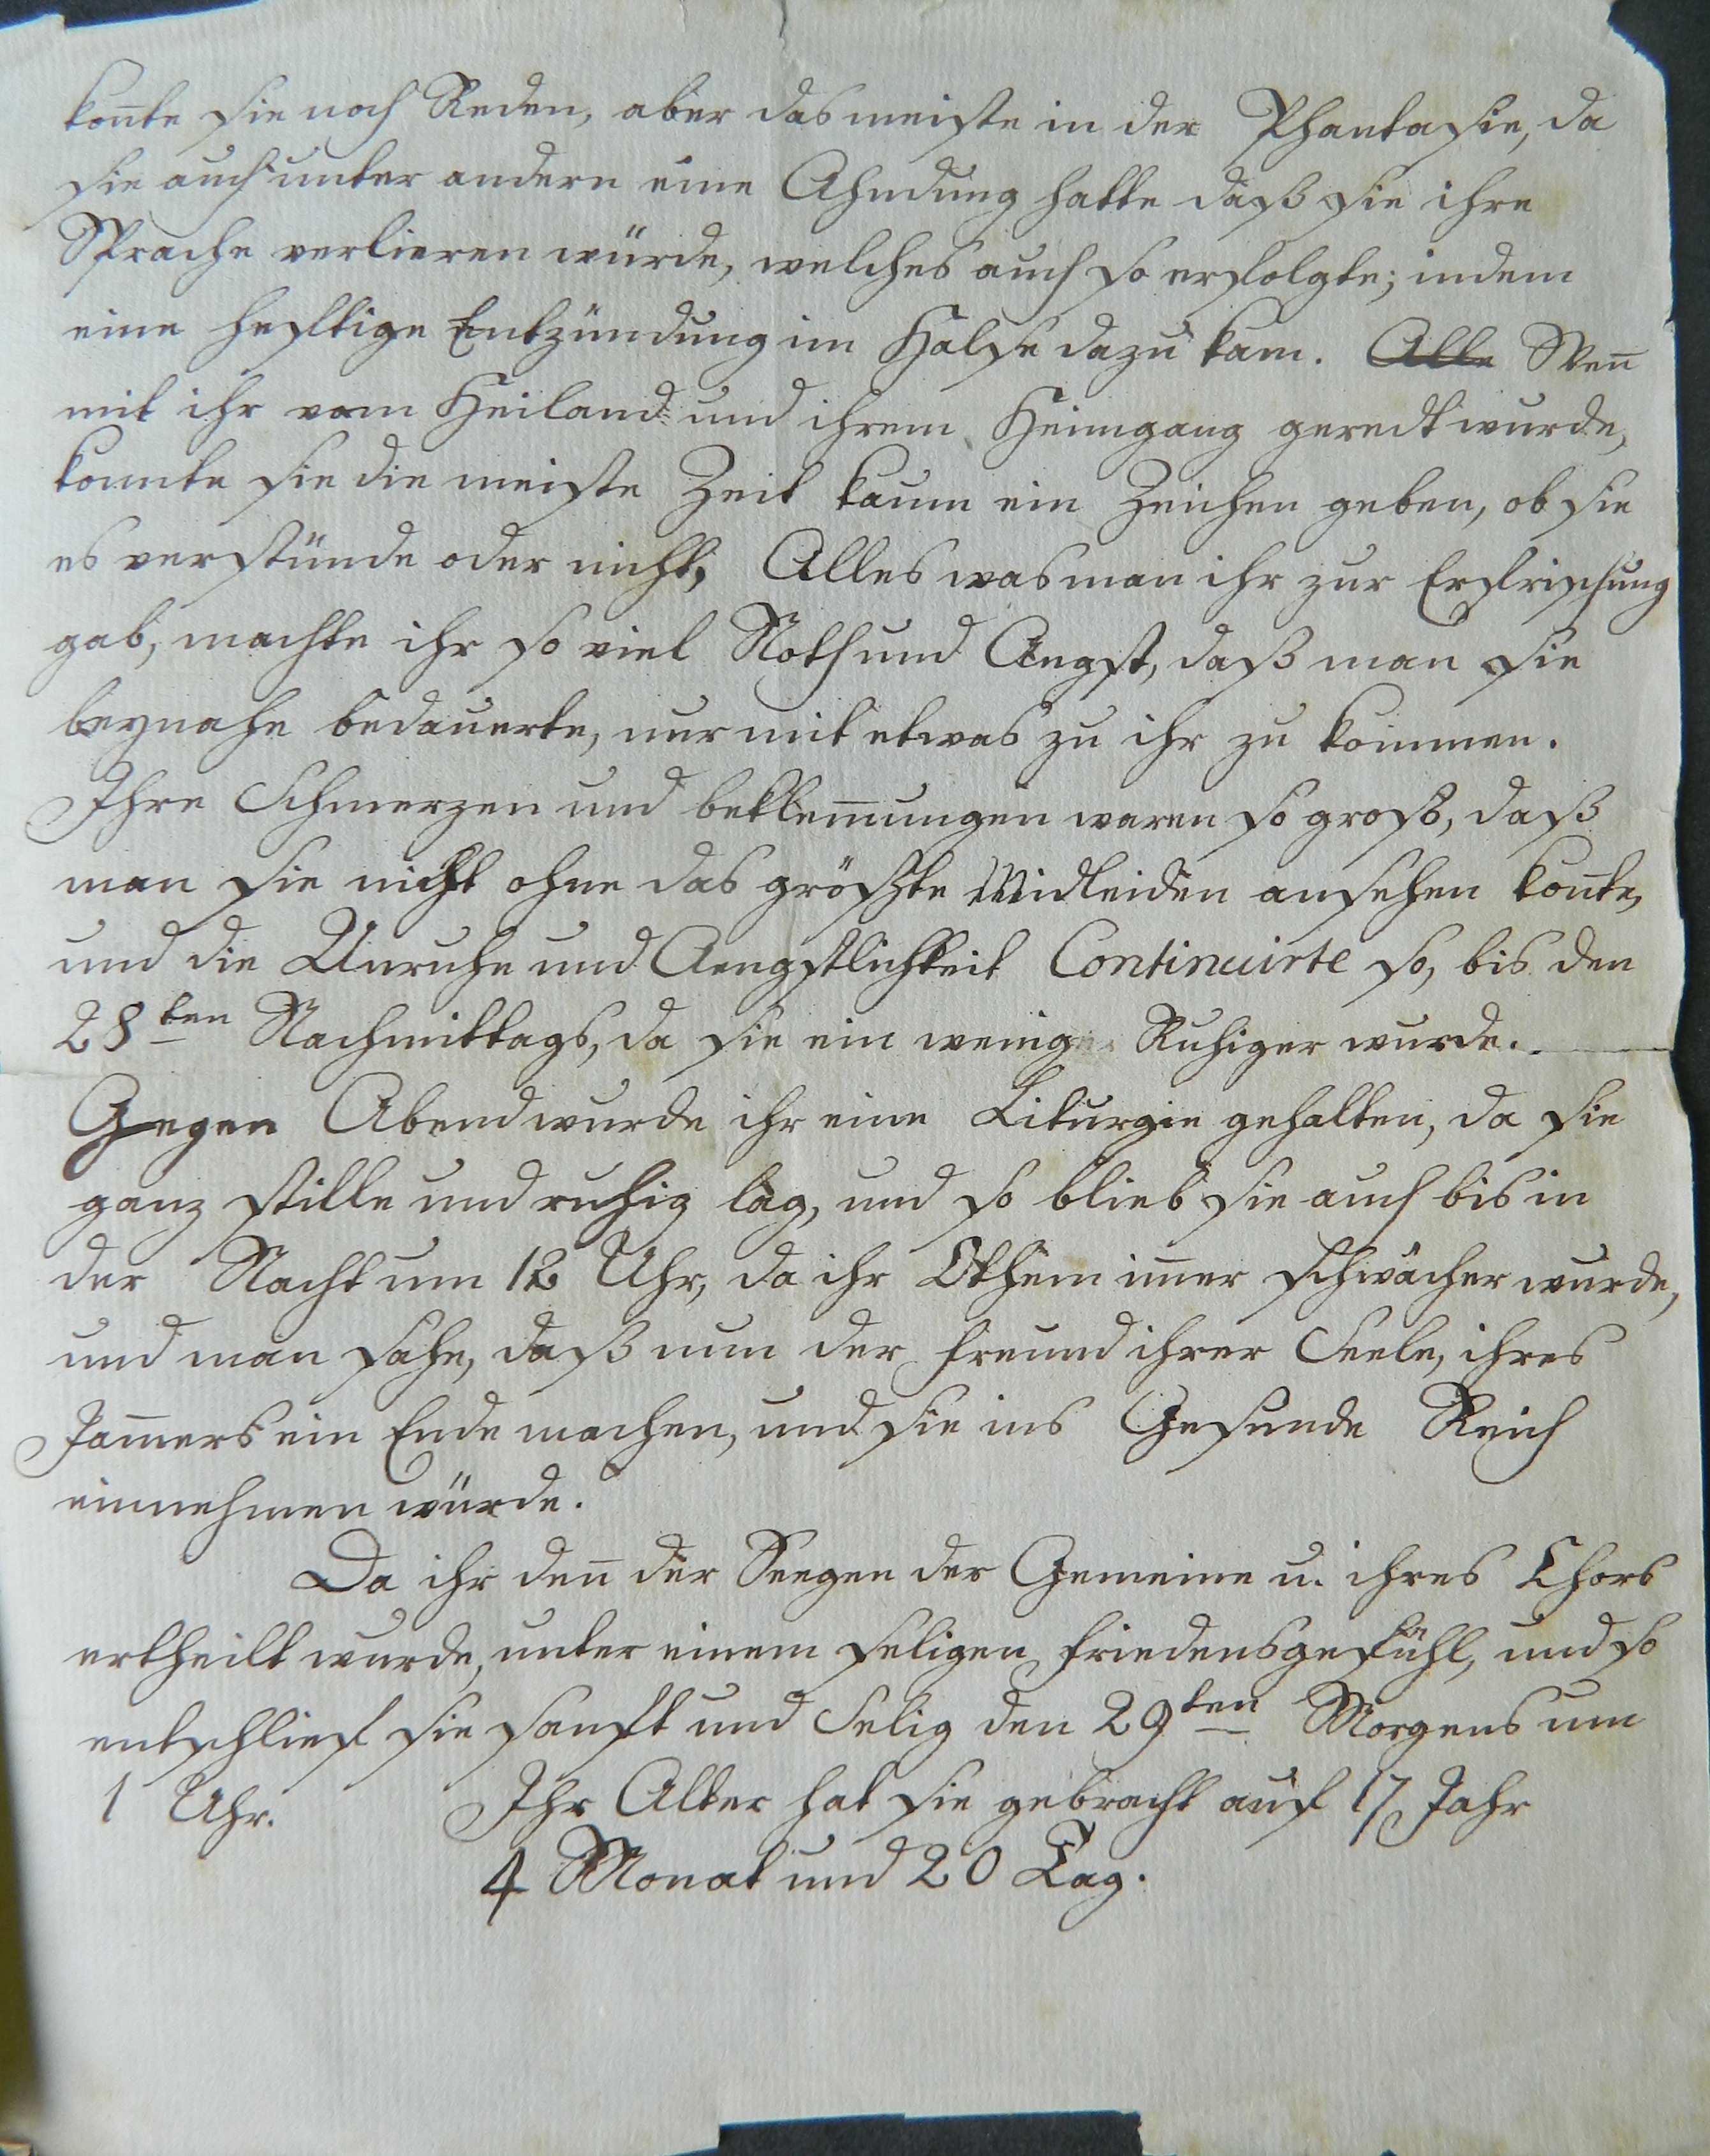 kon̄te sie noch Reden, aber das meiste in der Phantasie, da
sie auch unter andern eine Ahndung hatte daß sie ihre
Sprache verlieren würde, welches auch so erfolgte; indem
eine heftige Entzündung im Halse dazu kam. Alle Wen̄
mit ihr vom Heiland und ihrem Heimgang geredt wurde,
konnte sie die meiste Zeit kaum ein Zeichen geben, ob sie
es verstünde oder nicht, Alles was man ihr zur Erfrischung
gab, machte ihr so viel Noth und Angst, daß man sie
beynahe bedauerte, nur mit etwas zu ihr zu kommen.
Ihre Schmerzen und beklem̄ungen waren so groß, daß
man sie nicht ohne das größte Midleiden ansehen kon̄te,
und die Unruhe und Aengstlichkeit Continuirte so, bis den
28ten Nachmittags, da sie ein wenig Ruhiger wurde.
Gegen Abend wurde ihr eine Liturgie gehalten, da sie
ganz stille und ruhig lag, und so blieb sie auch bis in
der Nacht um 12 Uhr, da ihr Othem im̄er schwächer wurde,
und man sahe, daß nun der Freund ihrer Seele, ihres
Jam̄ers ein Ende machen, und sie ins Gesunde Reich
einnehmen würde.
Da ihr den̄ der Seegen der Gemeine u. ihres Chors
ertheilt wurde, unter einem seligen Friedensgefühl, und so
entschlief sie sanft und Selig den 29ten Morgens um
1 Uhr. Ihr Alter hat sie gebracht auf 17 Jahr
4 Monat und 20 Tag.